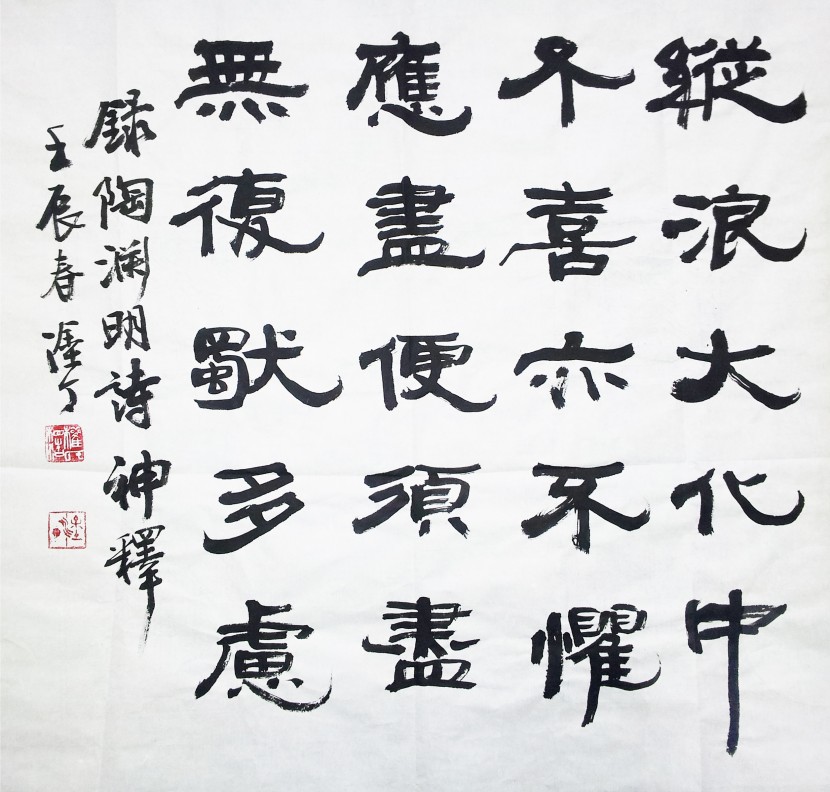 縱浪大化中
不喜亦不懼
應盡便須盡
無復獨多慮
録陶淵明詩神釋
壬辰春